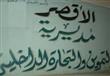 الأقصر
مديرية
التموين والتجارة الداخلية